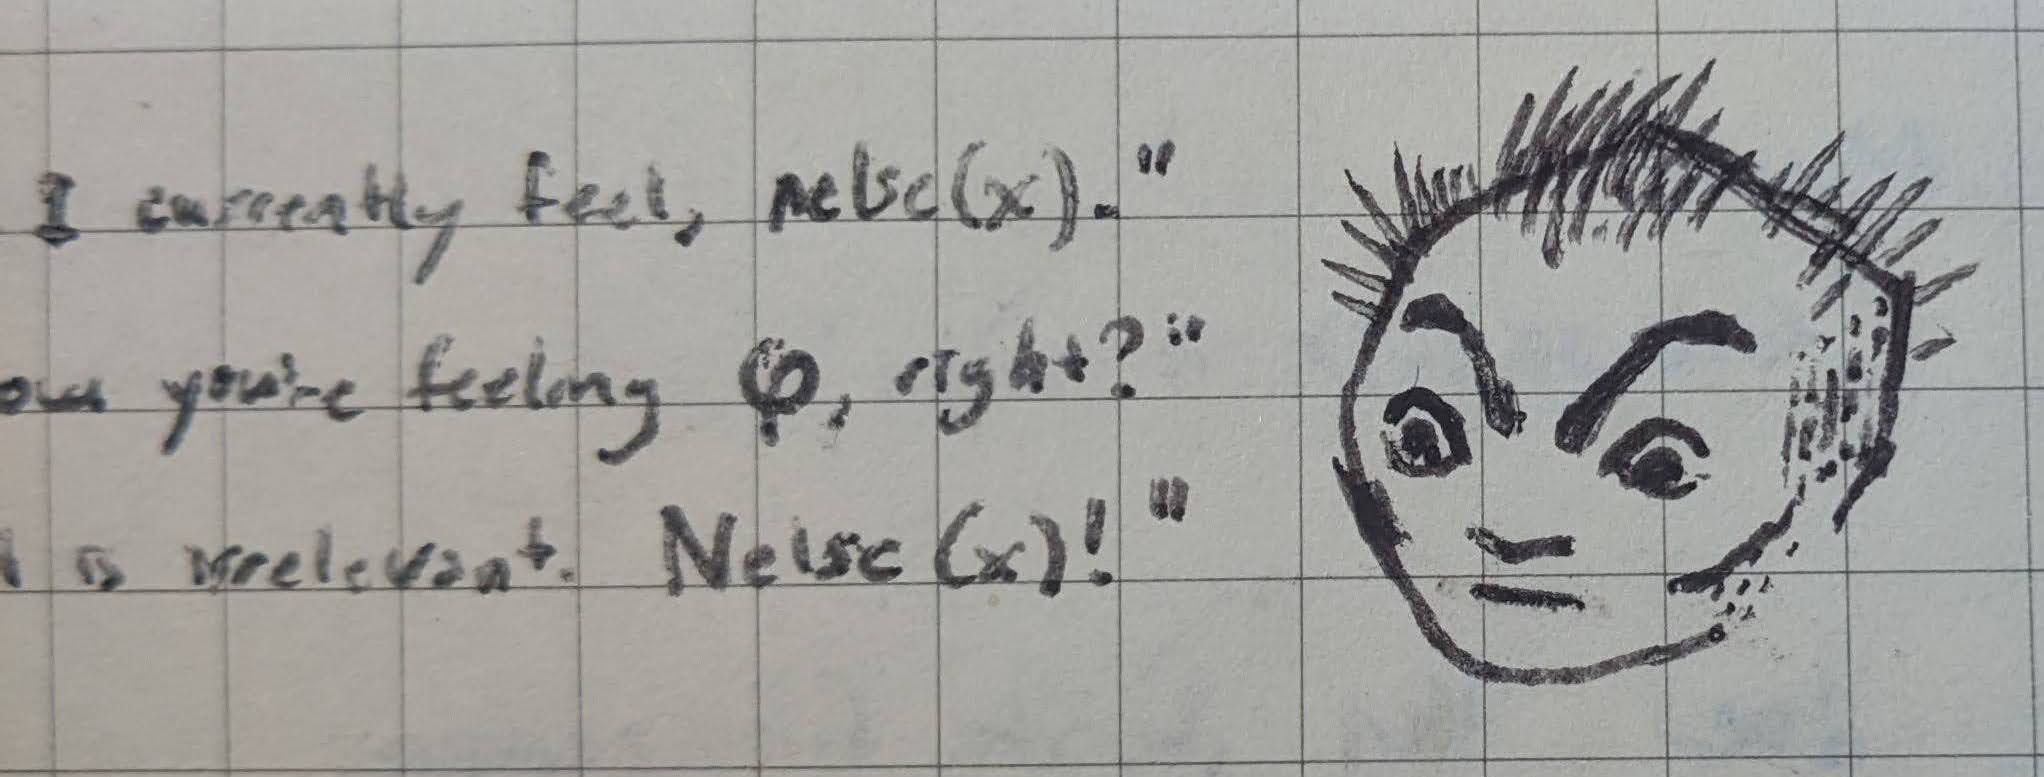 I currently feel, nelsc(x)."
you're feeling φ, right?"
is irrelevant. Nelsc(x)!"